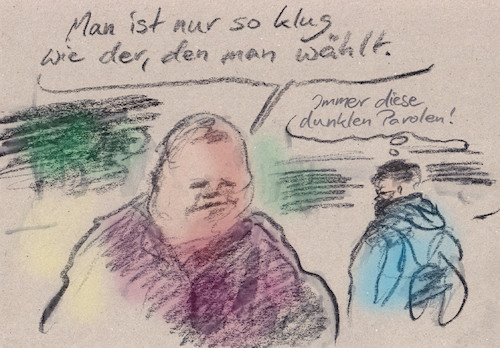 Man ist nur so klug
wie der, den man wählt.
Immer diese
dunklen Parolen!